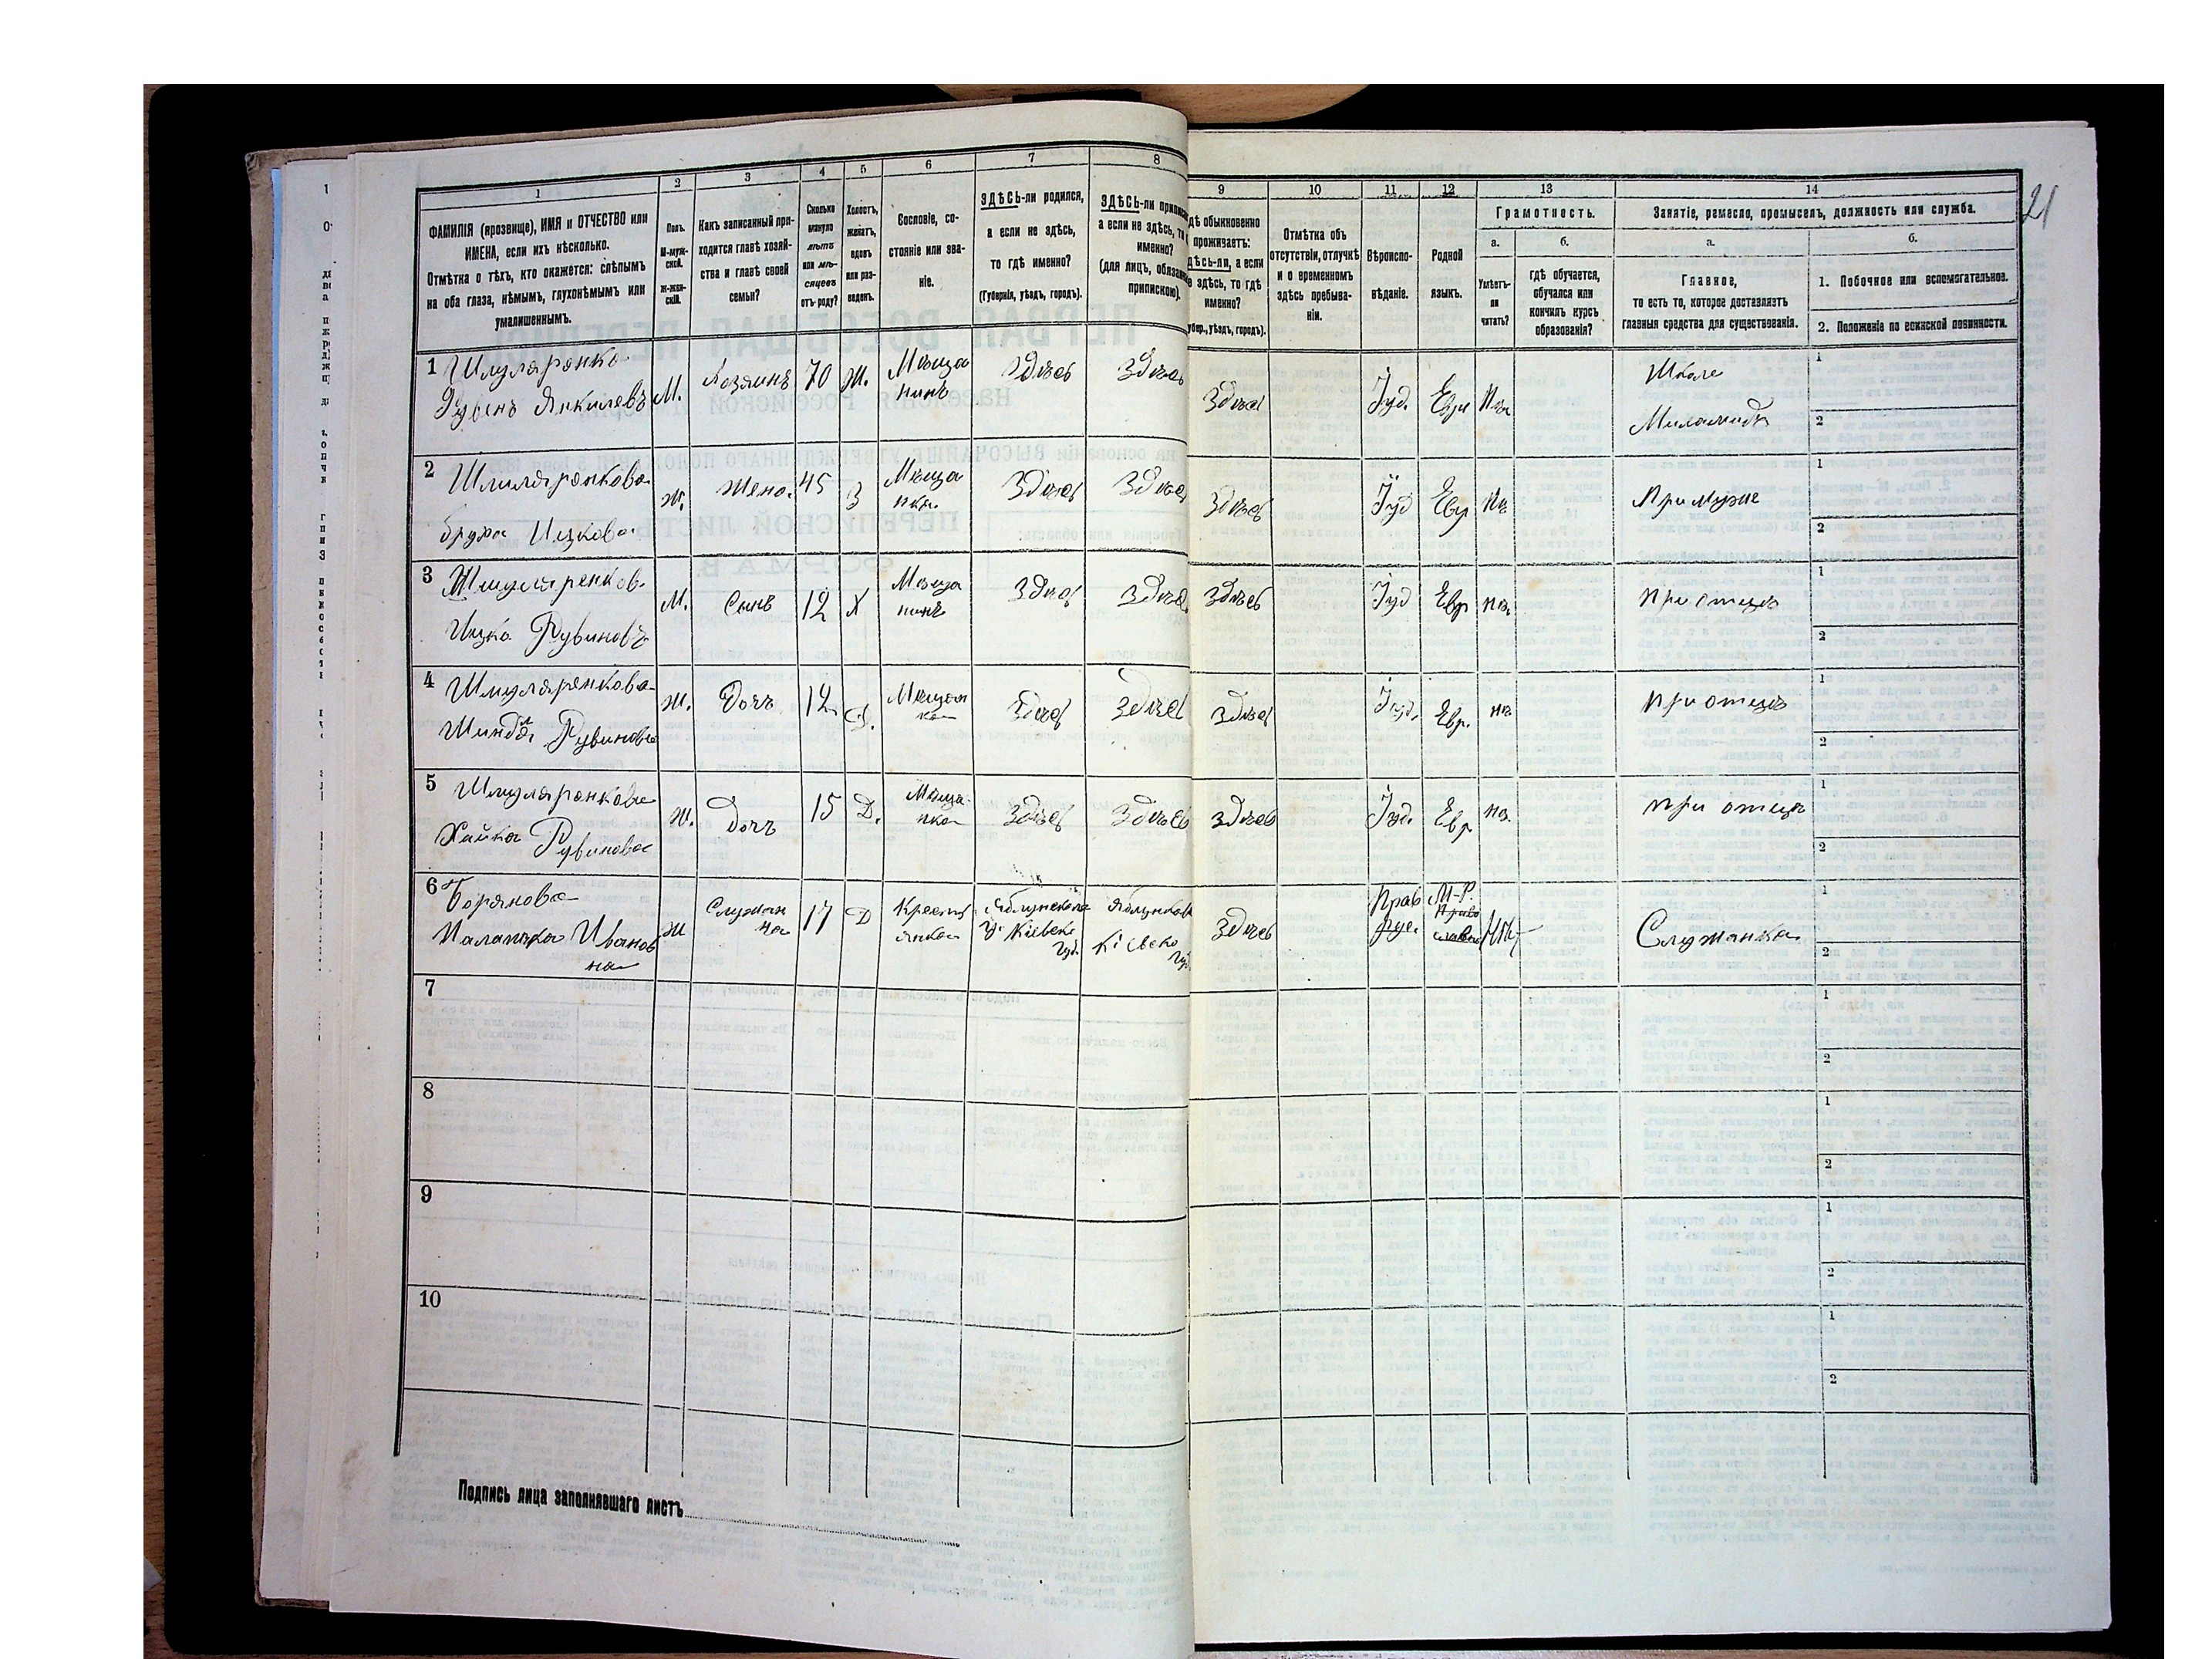 21
1
2
3
4
5
6
7
8
9
10
11
12
13
14
ФАМИЛІЯ (прозвище), ИМЯ и ОТЧЕСТВО или
ИМЕНА, если ихъ нѣсколько.
Отмѣтка о тѣхъ, кто окажется: слѣпымъ
на оба глаза, нѣмымъ, глухонѣмымъ или
умалишеннымъ.
Полъ.
М-муж-
ской.
Ж-жен-
скій.
Какъ записанный при-
ходится главѣ хозяй-
ства и главѣ своей
семьи?
Сколько
минуло
лѣтъ
или мѣ-
сяцевъ
отъ роду?
Холостъ,
женатъ,
вдовъ
или раз-
веденъ.
Сословіе, со-
стояніе или зва-
ніе.
ЗДѢСЬ-ли родился,
а если не здѣсь,
то гдѣ именно?
(Губернія, уѣздъ, городъ).
ЗДѢСЬ-ли приписа
а если не здѣсь, то
именно?
(для лицъ, обязан
припискою).
дѣ обыкновенно
проживаетъ:
дѣсь-ли, а если
е здѣсь, то гдѣ
именно?
убер., уѣздъ, городъ).
Отмѣтка объ
отсутствіи, отлучкѣ
и о временномъ
здѣсь пребыва-
ніи.
Вѣроиспо-
вѣданіе.
Родной
языкъ.
Грамотность.
а.
б.
Умѣетъ-
ли
читать?
гдѣ обучается,
обучался или
кончилъ курсъ
образованія?
Занятіе, ремесло, промыселъ, должность или служба.
а.
б.
Главное,
то есть то, которое доставляетъ
главныя средства для существованія.
1. Побочное или вспомогательное.
2. Положеніе по воинской повинности.
1 Шмуляренко
Рувенъ Янкилевъ
М.
Хозяинъ
70
Ж.
Мѣща
нинъ
Здѣсь
Здѣсь
Здѣсь
Іуд.
Евр
Школе
Меламидъ
1
2
2 Шмуляренкова
Бруха Ицкова
Ж.
Жена.
45
З
Мѣща
нка
Здѣсь
Здѣсь
Здѣсь
Іуд
Евр
При мужѣ
1
2
3 Шмуляренков
Ицко Рувиновъ
М.
Сынъ
12
Х
Мѣща
нинъ
Здѣсь
Здѣсь
Здѣсь
Іуд
Евр
при отцѣ
1
2
4 Шмуляренкова
Шиндля Рувинова
Ж.
Дочъ
12
Д.
Мѣщан
ка
Здѣсь
Здѣсь
Здѣсь
Іуд.
Евр.
при отцѣ
1
2
5 Шмуляренкова
Хайка Рувинова
Ж.
Дочъ
15
Д.
Мѣща-
нка
Здѣсь
Здѣсь
Здѣсь
Іуд.
Евр
при отцѣ
1
2
6 Борянова
Палашка Иванов
на
Ж
Служан
ка
17
Д
Крестъ
янка
Кіевско
Губ.
Кіевско
Губ
Здѣсь
Прав
М-Р.
Право
славна
Нѣт
Служанка
1
2
7
1
2
8
1
2
9
1
2
10
1
2
Подпись лица заполнявшаго листъ